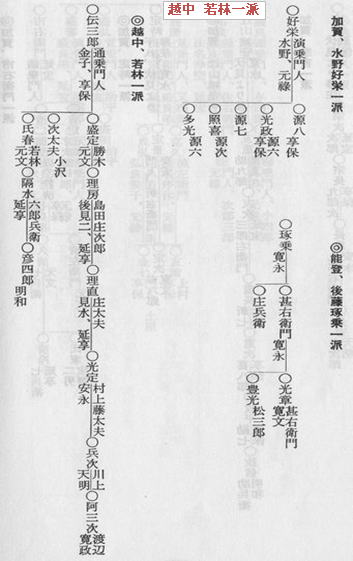 越中 若林一派
加賀、水野好栄一派
〇好栄 演乗門人 水野、元祿
〇源八 享保
〇光政 源六 享保
〇源七
〇照喜 源次
〇多光 源六
◎能登、後藤琢乗一派
〇琢乗 寛永
〇甚右衛門 寛永
〇庄兵衛
〇光章 甚右衛門 寛文
〇豊光 松三郎
◎越中、若林一派
〇伝三郎 通乗門人 金子、享保
〇盛定 勝木 元文
〇理房 島田庄次郎 後見二、延享
〇理直 庄太夫 見水、延享
〇光定 村上藤太夫 安永
〇兵次 川上 天明
〇阿三次 渡辺 寛政
〇次太夫 小沢
〇氏春 若林 元文
〇隔水 六郎兵衛 延享
〇彦四郎 明和